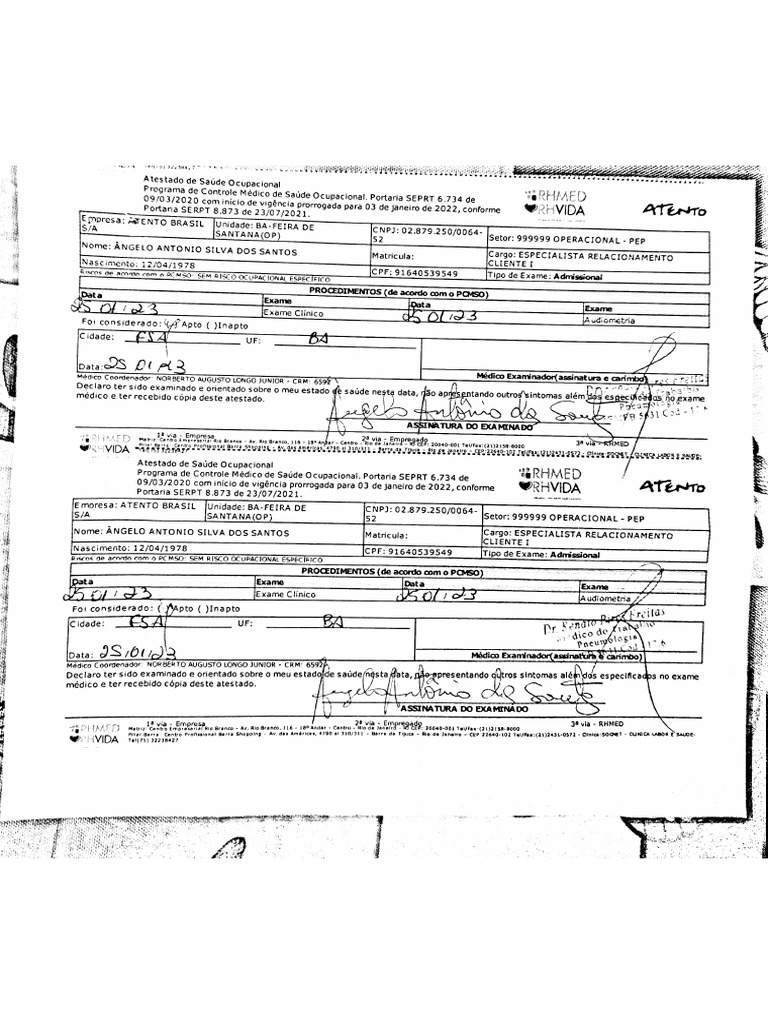 Atestado de Saúde Ocupacional
Programa de Controle Médico de Saúde Ocupacional. Portaria SEPRT 6.734 de
09/03/2020 com início de vigência prorrogada para 03 de janeiro de 2022, conforme
Portaria SERPT 8.873 de 23/07/2021.
RHMED
RHVIDA
ATENTO
Empresa: ATENTO BRASIL S/A
Unidade: BA-FEIRA DE SANTANA(OP)
CNPJ: 02.879.250/0064-52
Setor: 999999 OPERACIONAL - PEP
Nome: ÂNGELO ANTONIO SILVA DOS SANTOS
Matricula:
Cargo: ESPECIALISTA RELACIONAMENTO CLIENTE I
Nascimento: 12/04/1978
CPF: 91640539549
Tipo de Exame: Admissional
Riscos de acordo com o PCMSO: SEM RISCO OCUPACIONAL ESPECÍFICO
PROCEDIMENTOS (de acordo com o PCMSO)
Data Exame Data Exame
25 01 23 Exame Clínico 25 01 23 Audiometria
Foi considerado: ( ) Apto ( )Inapto
Cidade: FSA UF: BA
Data: 25 01 23
Médico Examinador(assinatura e carimbo)
Médico Coordenador: NORBERTO AUGUSTO LONGO JUNIOR - CRM: 6592
Declaro ter sido examinado e orientado sobre o meu estado de saúde nesta data, não apresentando outros sintomas além dos especificados no exame
médico e ter recebido cópia deste atestado.
Angelo Antônio dos Santos
ASSINATURA DO EXAMINADO
RHMED
RHVIDA
1ª via - Empresa 2ª via - Empregado 3ª via - RHMED
Atestado de Saúde Ocupacional
Programa de Controle Médico de Saúde Ocupacional. Portaria SEPRT 6.734 de
09/03/2020 com início de vigência prorrogada para 03 de janeiro de 2022, conforme
Portaria SERPT 8.873 de 23/07/2021.
RHMED
RHVIDA
ATENTO
Empresa: ATENTO BRASIL S/A
Unidade: BA-FEIRA DE SANTANA(OP)
CNPJ: 02.879.250/0064-52
Setor: 999999 OPERACIONAL - PEP
Nome: ÂNGELO ANTONIO SILVA DOS SANTOS
Matricula:
Cargo: ESPECIALISTA RELACIONAMENTO CLIENTE I
Nascimento: 12/04/1978
CPF: 91640539549
Tipo de Exame: Admissional
Riscos de acordo com o PCMSO: SEM RISCO OCUPACIONAL ESPECÍFICO
PROCEDIMENTOS (de acordo com o PCMSO)
Data Exame Data Exame
25 01 23 Exame Clínico 25 01 23 Audiometria
Foi considerado: ( )Apto ( )Inapto
Cidade: FSA UF: BA
Freitas
Médico do Trabalho
Pneumologia
Data: 25/01/23
Médico Examinador(assinatura e carimbo)
Médico Coordenador: NORBERTO AUGUSTO LONGO JUNIOR - CRM: 6592
Declaro ter sido examinado e orientado sobre o meu estado de saúde nesta data, não apresentando outros sintomas além dos especificados no exame
médico e ter recebido cópia deste atestado.
Angelo Antônio dos Santos
ASSINATURA DO EXAMINADO
RHMED
RHVIDA
1ª via - Empresa 2ª via - Empregado 3ª via - RHMED
Matriz: Centro Empresarial Rio Branco - Av. Rio Branco, 116 - 18º Andar - Centro - Rio de Janeiro - RJ CEP: 20040-001 Tel/Fax:(21)2158-8000
Filial Barra: Centro Profissional Barra Shopping - Av. das Américas, 4790 sl 310/311 - Barra da Tijuca - Rio de Janeiro - CEP 22640-102 Tel/Fax:(21)2431-0572 - Clínica:SOCNET - CLINICA LABOR E SAUDE-
Tel(75) 32238427